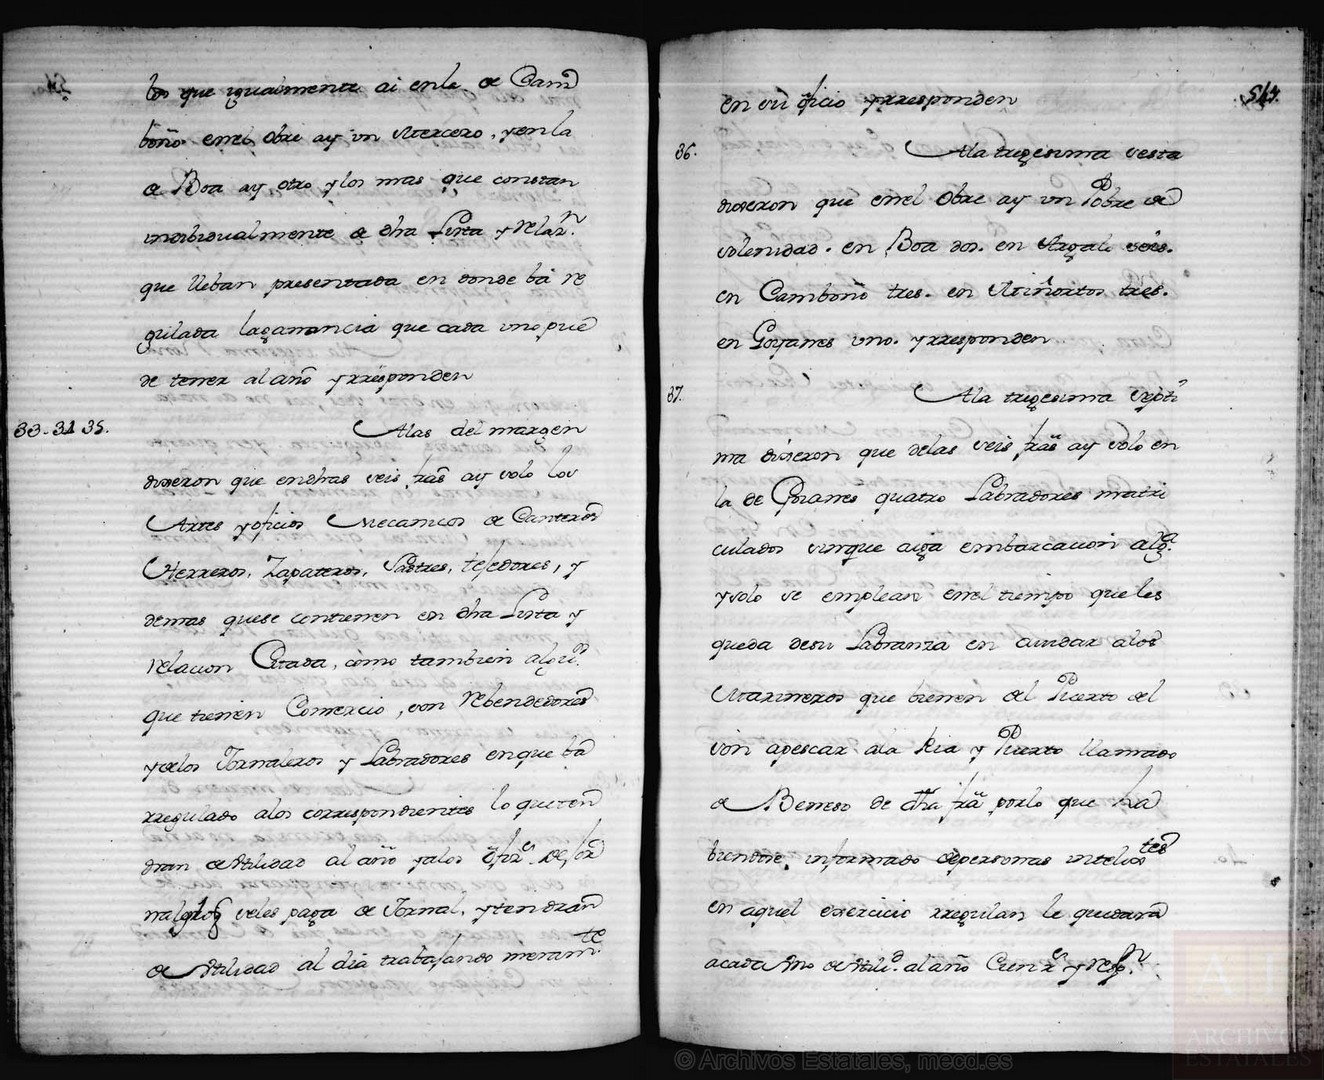 los que igualmente ai en la de Cam
boño en el Obre ay un Mercero, y en la
de Boa ay otro y los mas que constan
individualmente de dha Lista y Relazn.
que lleban presentada en donde bá re
gulada la ganancia que cada uno pue
de tener al año y rresponden
33-34 35.
A las del margen
dixeron que en dhas seis fras ay solo los
Artes y oficios Mecanicos de Canteros
Herreros, Zapateros, Sastres, tejedores, y
demas que se contienen en dha Lista y
relacion Citada, como tambien algus.
que tienen Comercio, son Rebendedores
y de los Jornaleros y Labradores en que bá
rregulado a los correspondientes lo que ten
dran de utilidad al año y a los
se les paga de Jornal, y tendran
de utilidad al dia trabajando meramte.
517.
en su oficio y rresponden
36.
A la trigesima sesta
dixeron que en el Obre ay un Pobre de
solenidad. en Boa dos. en Argalo seis.
en Camboño tres. en Miñortos tres.
en Goyanes uno. y rresponden
37.
A la trigesima septi
ma dixeron que de las seis fras ay solo en
la de Goianes quatro Labradores matri
culados sin que aiga embarcacion alga.
y solo se emplean en el tiempo que les
queda de su Labranza en aiudar a los
Marineros que bienen del Puerto del
son a pescar a la Ria y Puerto llamado
de Beneso de dha fra por lo que ha
biendose informado de personas intelixtes
en aquel exercicio rregulan le quedará
a cada uno de utilid. al año Cien rs. y respn.
© Archivos Estatales, mecd.es
ARCHIVOS
ESTATALES